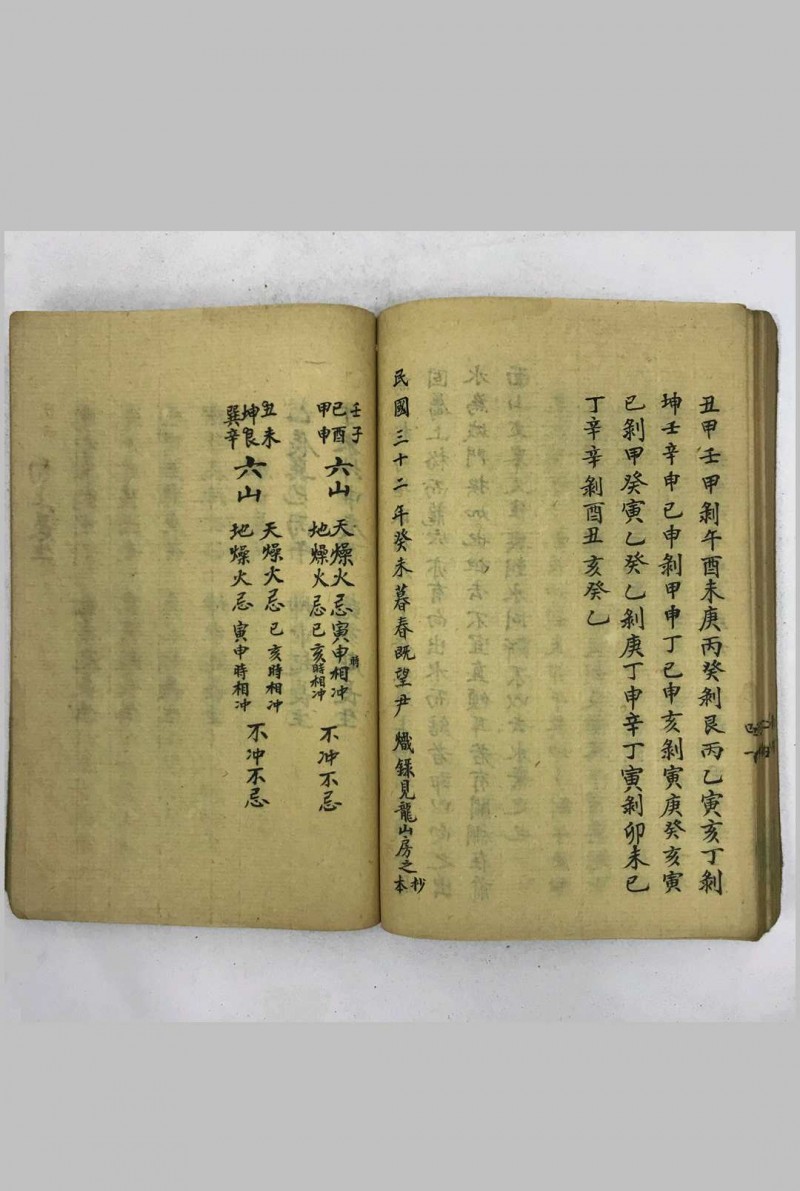 丑甲壬甲剝午酉未庚丙癸剝艮丙乙寅亥丁剝
坤壬辛申巳申剝甲申丁巳申亥剝寅庚癸亥寅
巳剝甲癸寅乙癸乙剝庚丁申辛丁寅剝卯未巳
丁辛辛剝酉丑亥癸乙
民國三十二年癸未暮春旣望尹熾錄見龍山房之抄本
壬子
巳酉
甲申
六山
天燥火忌寅申時相冲
地燥火忌巳亥時相冲
不冲不忌
丑未
坤艮
巽辛
六山
天燥火忌巳亥時相冲
地燥火忌寅申時相冲
不冲不忌